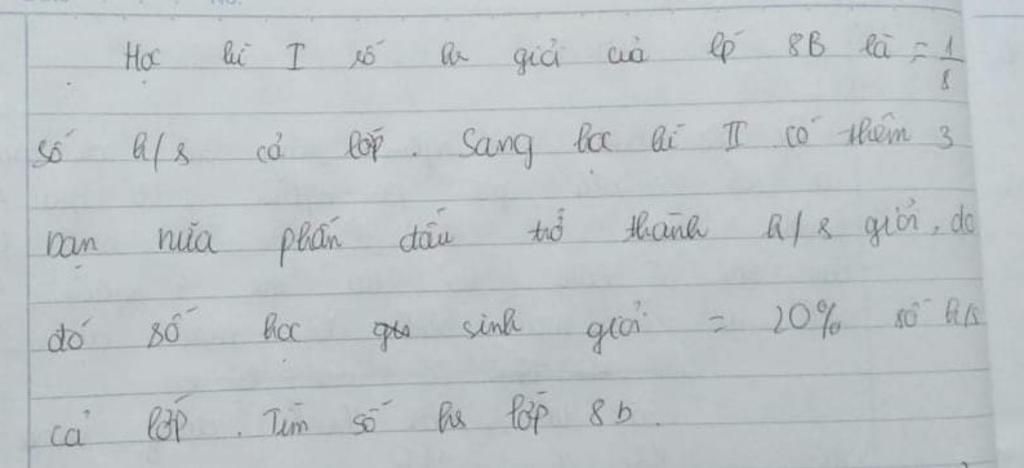 Học kì I số hs giỏi của lớp 8B là = 1/8
số h/s cả lớp. Sang học kì II có thêm 3
bạn nữa phấn đấu trở thành h/s giỏi, do
đó số học sinh giỏi = 20% số h/s
cả lớp. Tìm số hs lớp 8b.